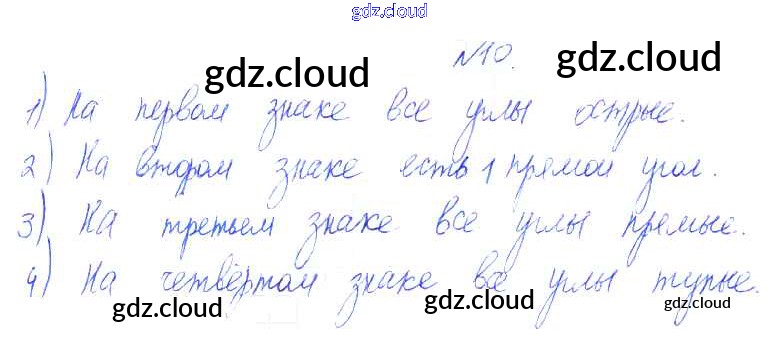 gdz.cloud
№10.
gdz.cloud
gdz.cloud
1) На первом знаке все углы острые.
2) На втором знаке есть 1 прямой угол.
3) На третьем знаке все углы прямые.
4) На четвёртом знаке все углы тупые.
gdz.cloud
gdz.cloud
gdz.cloud